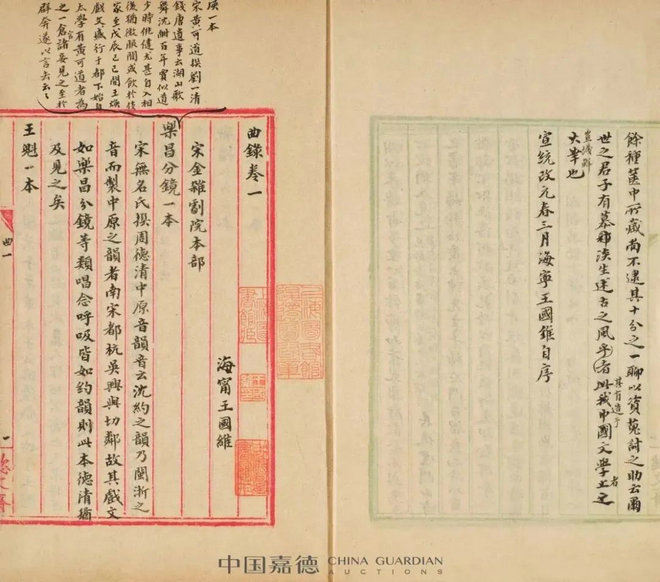 餘種篋中所藏尚不逮其十分之一聊以資蒐討之助云爾
世之君子有慕淡生述古之風乎者此我中國文學上之
其有造乎
者
大峯也
宣統改元春三月海寧王國維自序
一本
宋黃可道撰劉一清
錢唐遺事云湖山歌
舞沈酣百年賈似道
少時佻尤甚自入相
後猶微服閒或飲於伎
家至戊辰己巳間王煥
戲文盛行于都下始自
太學有黃可道者為
之一倉官諸妾見之至於
群奔遂以言去云々
曲錄卷一
海甯王國維
宋金雜劇院本部
樂昌分鏡一本
宋無名氏撰周德清中原音韻音云沈約之韻乃閩浙之
音而製中原之韻者南宋都杭吳興與切鄰故其戲文
如樂昌分鏡等類唱念呼吸皆如約韻則此本德清猶
及見之矣
王魁一本
曲一
一
中国嘉德 CHINA GUARDIAN
AUCTIONS